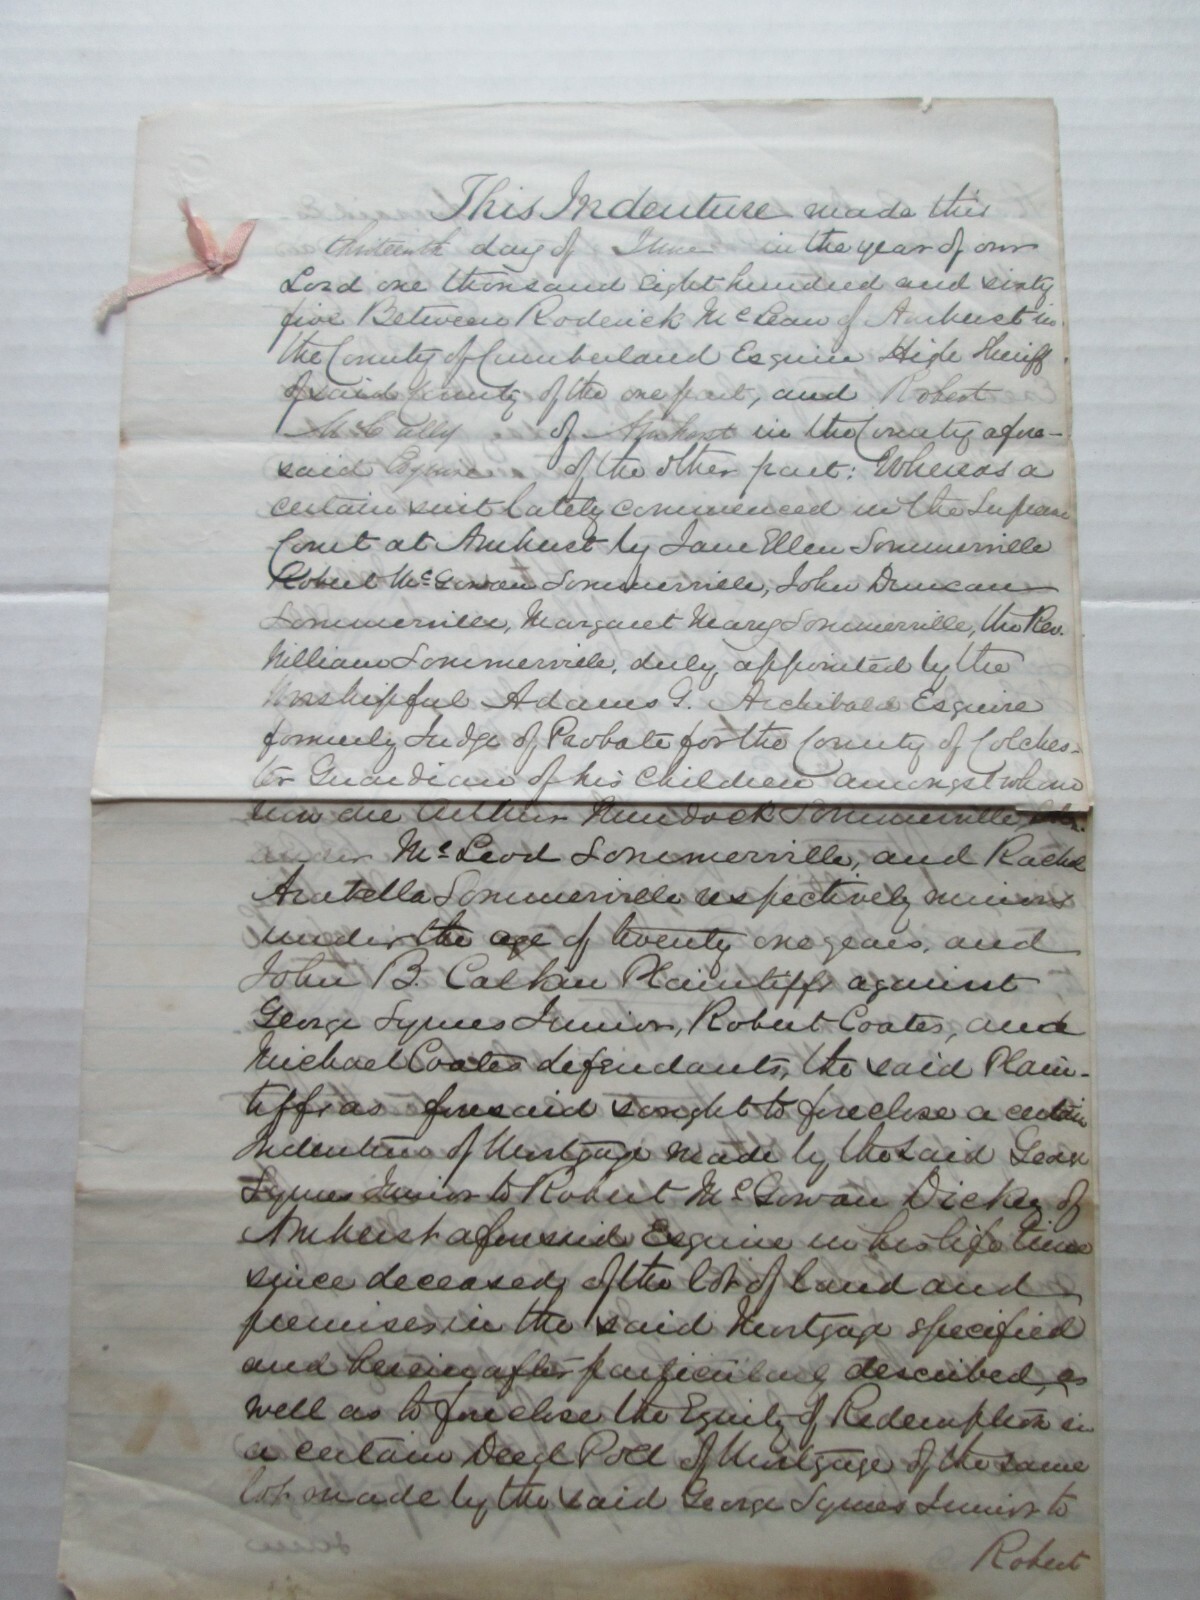 This Indenture made this
thirteenth day of June in the year of our
Lord one thousand eight hundred and sixty
five Between Roderick McLean of Amherst in
the County of Cumberland Esquire High Sheriff
of said County of the one part, and Robert
McCully of Amherst in the County afore-
said Esquire of the other part: Whereas a
certain suit lately commenced in the Supreme
Court at Amherst by Jane Ellen Sommerville
Robert McGowan Sommerville, John Duncan
Sommerville, Margaret Mary Sommerville, the Rev.
William Sommerville, duly appointed by the
Worshipful Adams G. Archibald Esquire
formerly Judge of Probate for the County of Colches-
ter Guardian of his children amongst whom
are Arthur Murdock Sommerville
McLeod Sommerville, and Rachel
Arabella Sommerville respectively minors
under the age of twenty one years, and
John B. Calhoun Plaintiffs against
George Symes Junior, Robert Coates, and
Michael Coates defendants, the said Plain-
tiffs as foresaid sought to foreclose a certain
Indenture of Mortgage made by the said George
Symes Junior to Robert McGowan Dickey of
Amherst aforesaid Esquire in his life time
since deceased, of the lot of land and
premises in the said Mortgage specified
and hereinafter particularly described, as
well as to foreclose the Equity of Redemption in
a certain Deed Poll of Mortgage of the same
lot made by the said George Symes Junior to
Robert